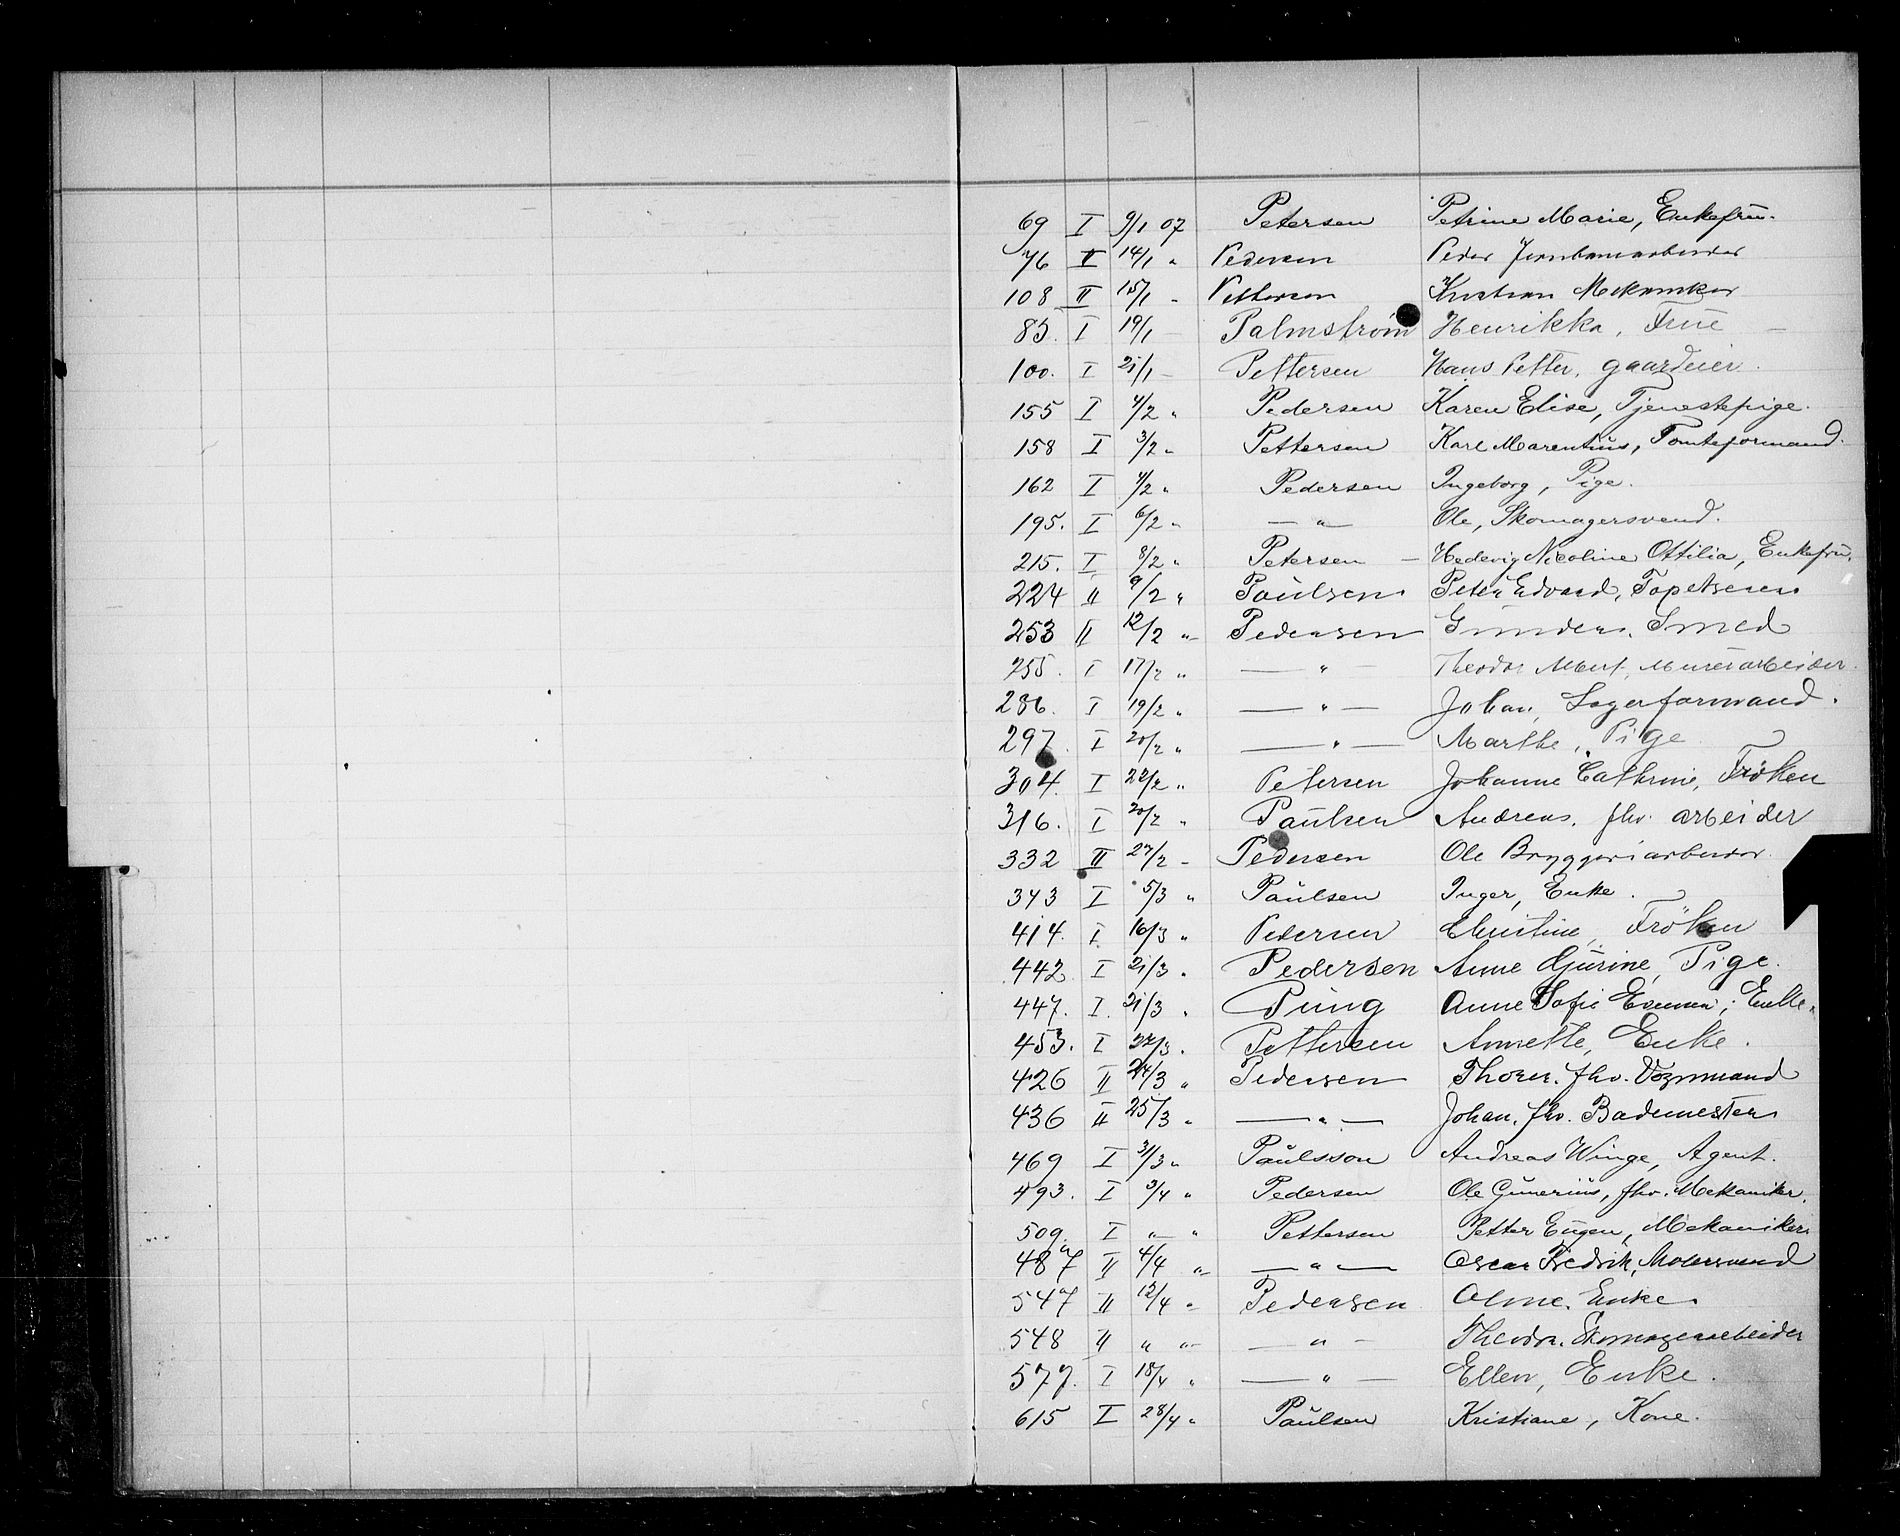 69 I 9/1 07 Petersen Petrine Marie, Enkefru.
76 II 14/1 " Pedersen Peder Jernbanearbeider
108 II 15/1 - Pettersen Kristian Mekaniker
85. I 19/1 - Palmstrøm Henrikka, Frue -
100. I 21/1 - Pettersen Hans Petter, gaardeier.
155 I 4/2 " Pedersen Karen Elise, Tjenestepige.
158 I 3/2 " Pettersen Karl Marentius, Tomteformand.
162 I 4/2 " Pedersen Ingeborg, Pige.
195. I 6/2 " — " — Ole, Skomagersvend.
215. I 8/2 " Petersen - Hedevig Nicoline Ottilia, Enkefru.
224 II 9/2 " Paulsen Peter Edvard, Tapetserer
253 II 12/2 " Pedersen Gunder, Smed
255. I 17/2 " — " — Theodor Albert, Murerarbeider.
286. I 19/2 " — " — Johan, Lagerformand.
297. I 20/2 " — " — Marthe, Pige
304. I 22/2 " Petersen Johanne Cathrine, Frøken
316. I 20/2 " Paulsen Andreas, fhv. arbeider
332 II 27/2 - Pedersen Ole Bryggeriarbeider.
343 I 5/3 " Paulsen Inger, Enke.
414. I. 16/3 " Pedersen Christine, Frøken
442 I 21/3 . Pedersen Anne Gjurine, Pige.
447. I. 21/3 . Pung Anne Sofie Emma, Enke.
453. I 22/3 . Pettersen Annette, Enke.
426 II 24/3 " Pedersen Thorer. fhv. Vognmand
436 II 25/3 " — " — Johan, fhv. Bademester
469 I 31/3 " Paulsson Andreas Winge, Agent.
493. I 3/4 " Pedersen Ole Gunerius, fhv. Mekaniker.
509. I " " Pettersen Petter Eugen, Mekaniker.
487 II 4/4 " — " — Oscar Fredrik, Malersvend
547 II 12/4 " Pedersen Oline. Enke.
548 II " " — " — Theodor. Skomagerarbeider
577. I 18/4 " — " — Ellen, Enke.
615 I 28/4 " Paulsen Kristiane, Kone.